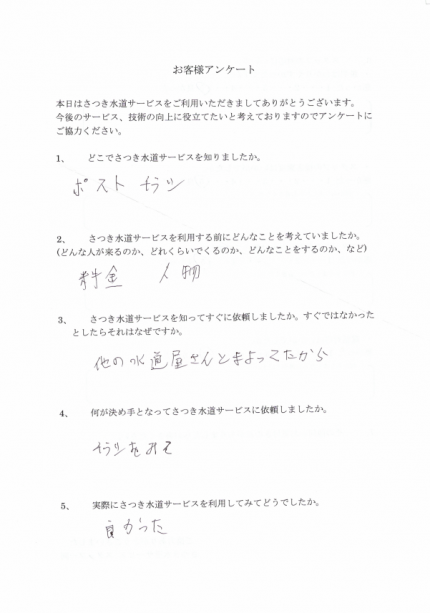 お客様アンケート
本日はさつき水道サービスをご利用いただきましてありがとうございます。
今後のサービス、技術の向上に役立てたいと考えておりますのでアンケートに
ご協力ください。
1、 どこでさつき水道サービスを知りましたか。
ポスト チラシ
2、 さつき水道サービスを利用する前にどんなことを考えていましたか。
(どんな人が来るのか、どれくらいでくるのか、どんなことをするのか、など)
料金 人物
3、 さつき水道サービスを知ってすぐに依頼しましたか。すぐではなかった
としたらそれはなぜですか。
他の水道屋さんとまよってたから
4、 何が決め手となってさつき水道サービスに依頼しましたか。
チラシをみて
5、 実際にさつき水道サービスを利用してみてどうでしたか。
良かった